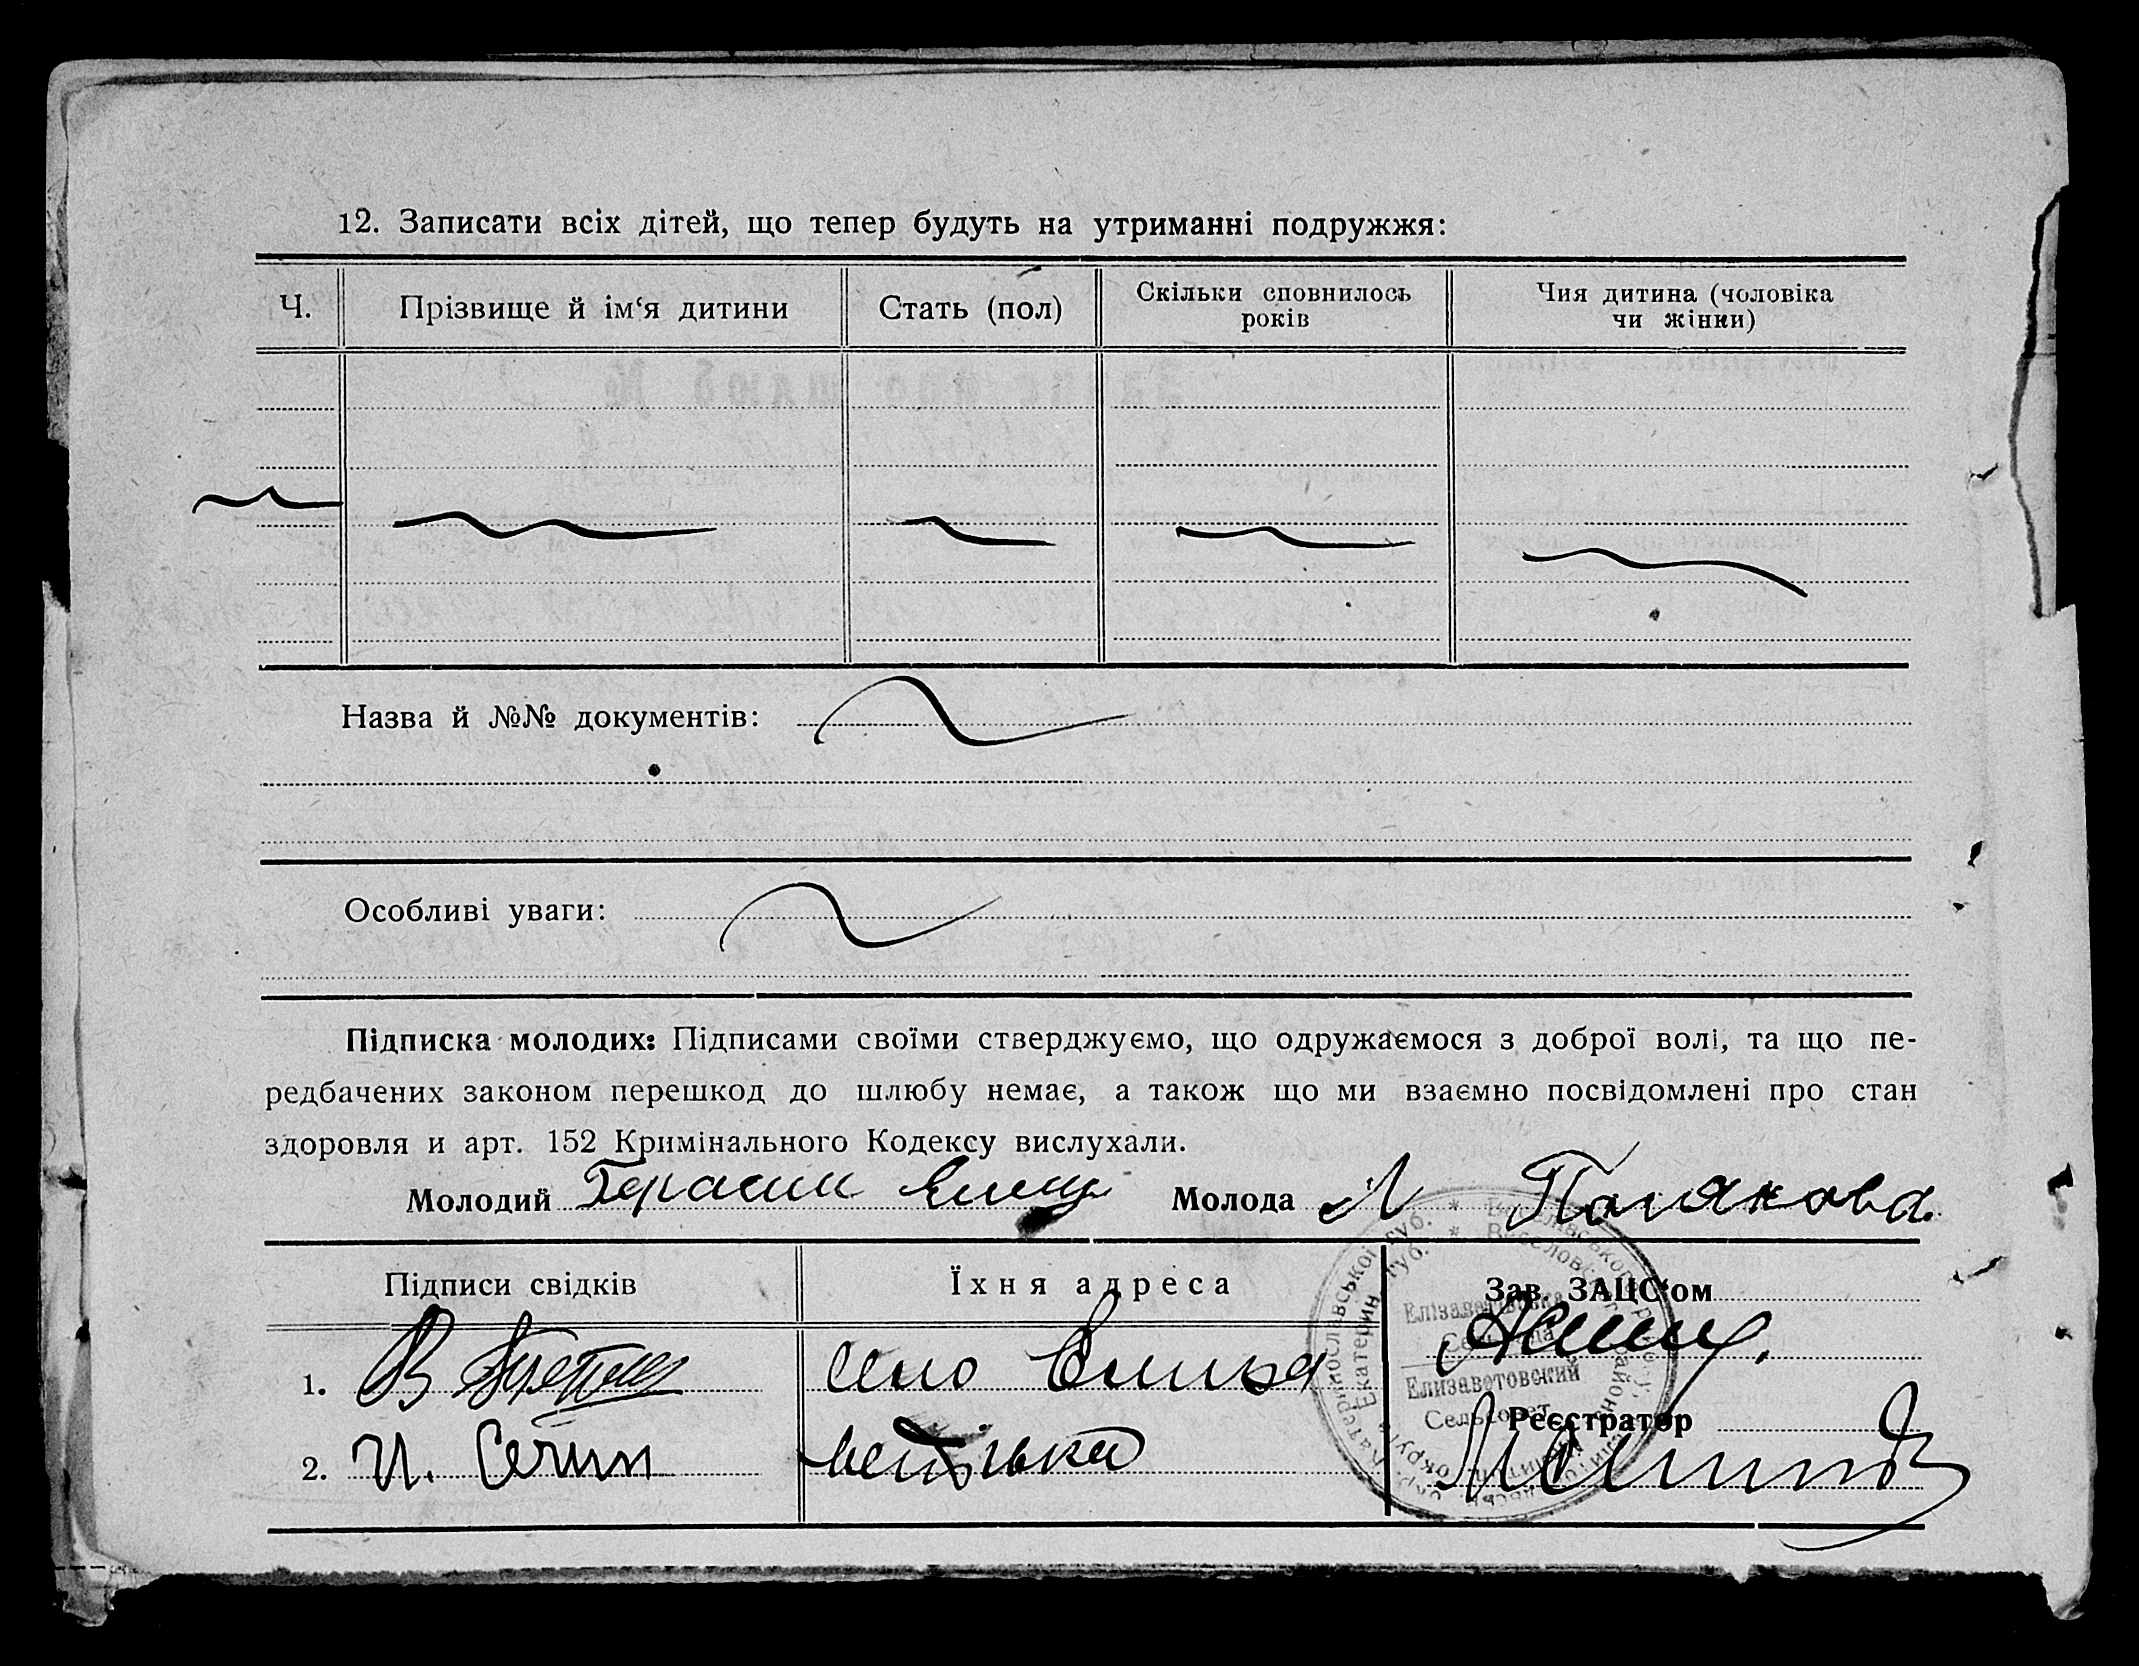 12. Записати всіх дітей, що тепер будуть на утриманні подружжя:
Ч. Прізвище й ім‘я дитини Стать (пол) Скільки сповнилось років Чия дитина (чоловіка чи жінки)
Назва й №№ документів:
Особливі уваги:
Підписка молодих: Підписами своїми стверджуємо, що одружаємося з доброї волі, та що пе-
редбачених законом перешкод до шлюбу немає, а також що ми взаємно посвідомлені про стан
здоровля и арт. 152 Кримінального Кодексу вислухали.
Молодий Герасим Молода Л Полякова
Підписи свідків Їхня адреса Зав. ЗАЦС‘ом
Елізаветівська
Сельрада
1. В село Єлиза
Елизаветовский
Сельсовет
Реєстратор
2. И. Сечин ветівка